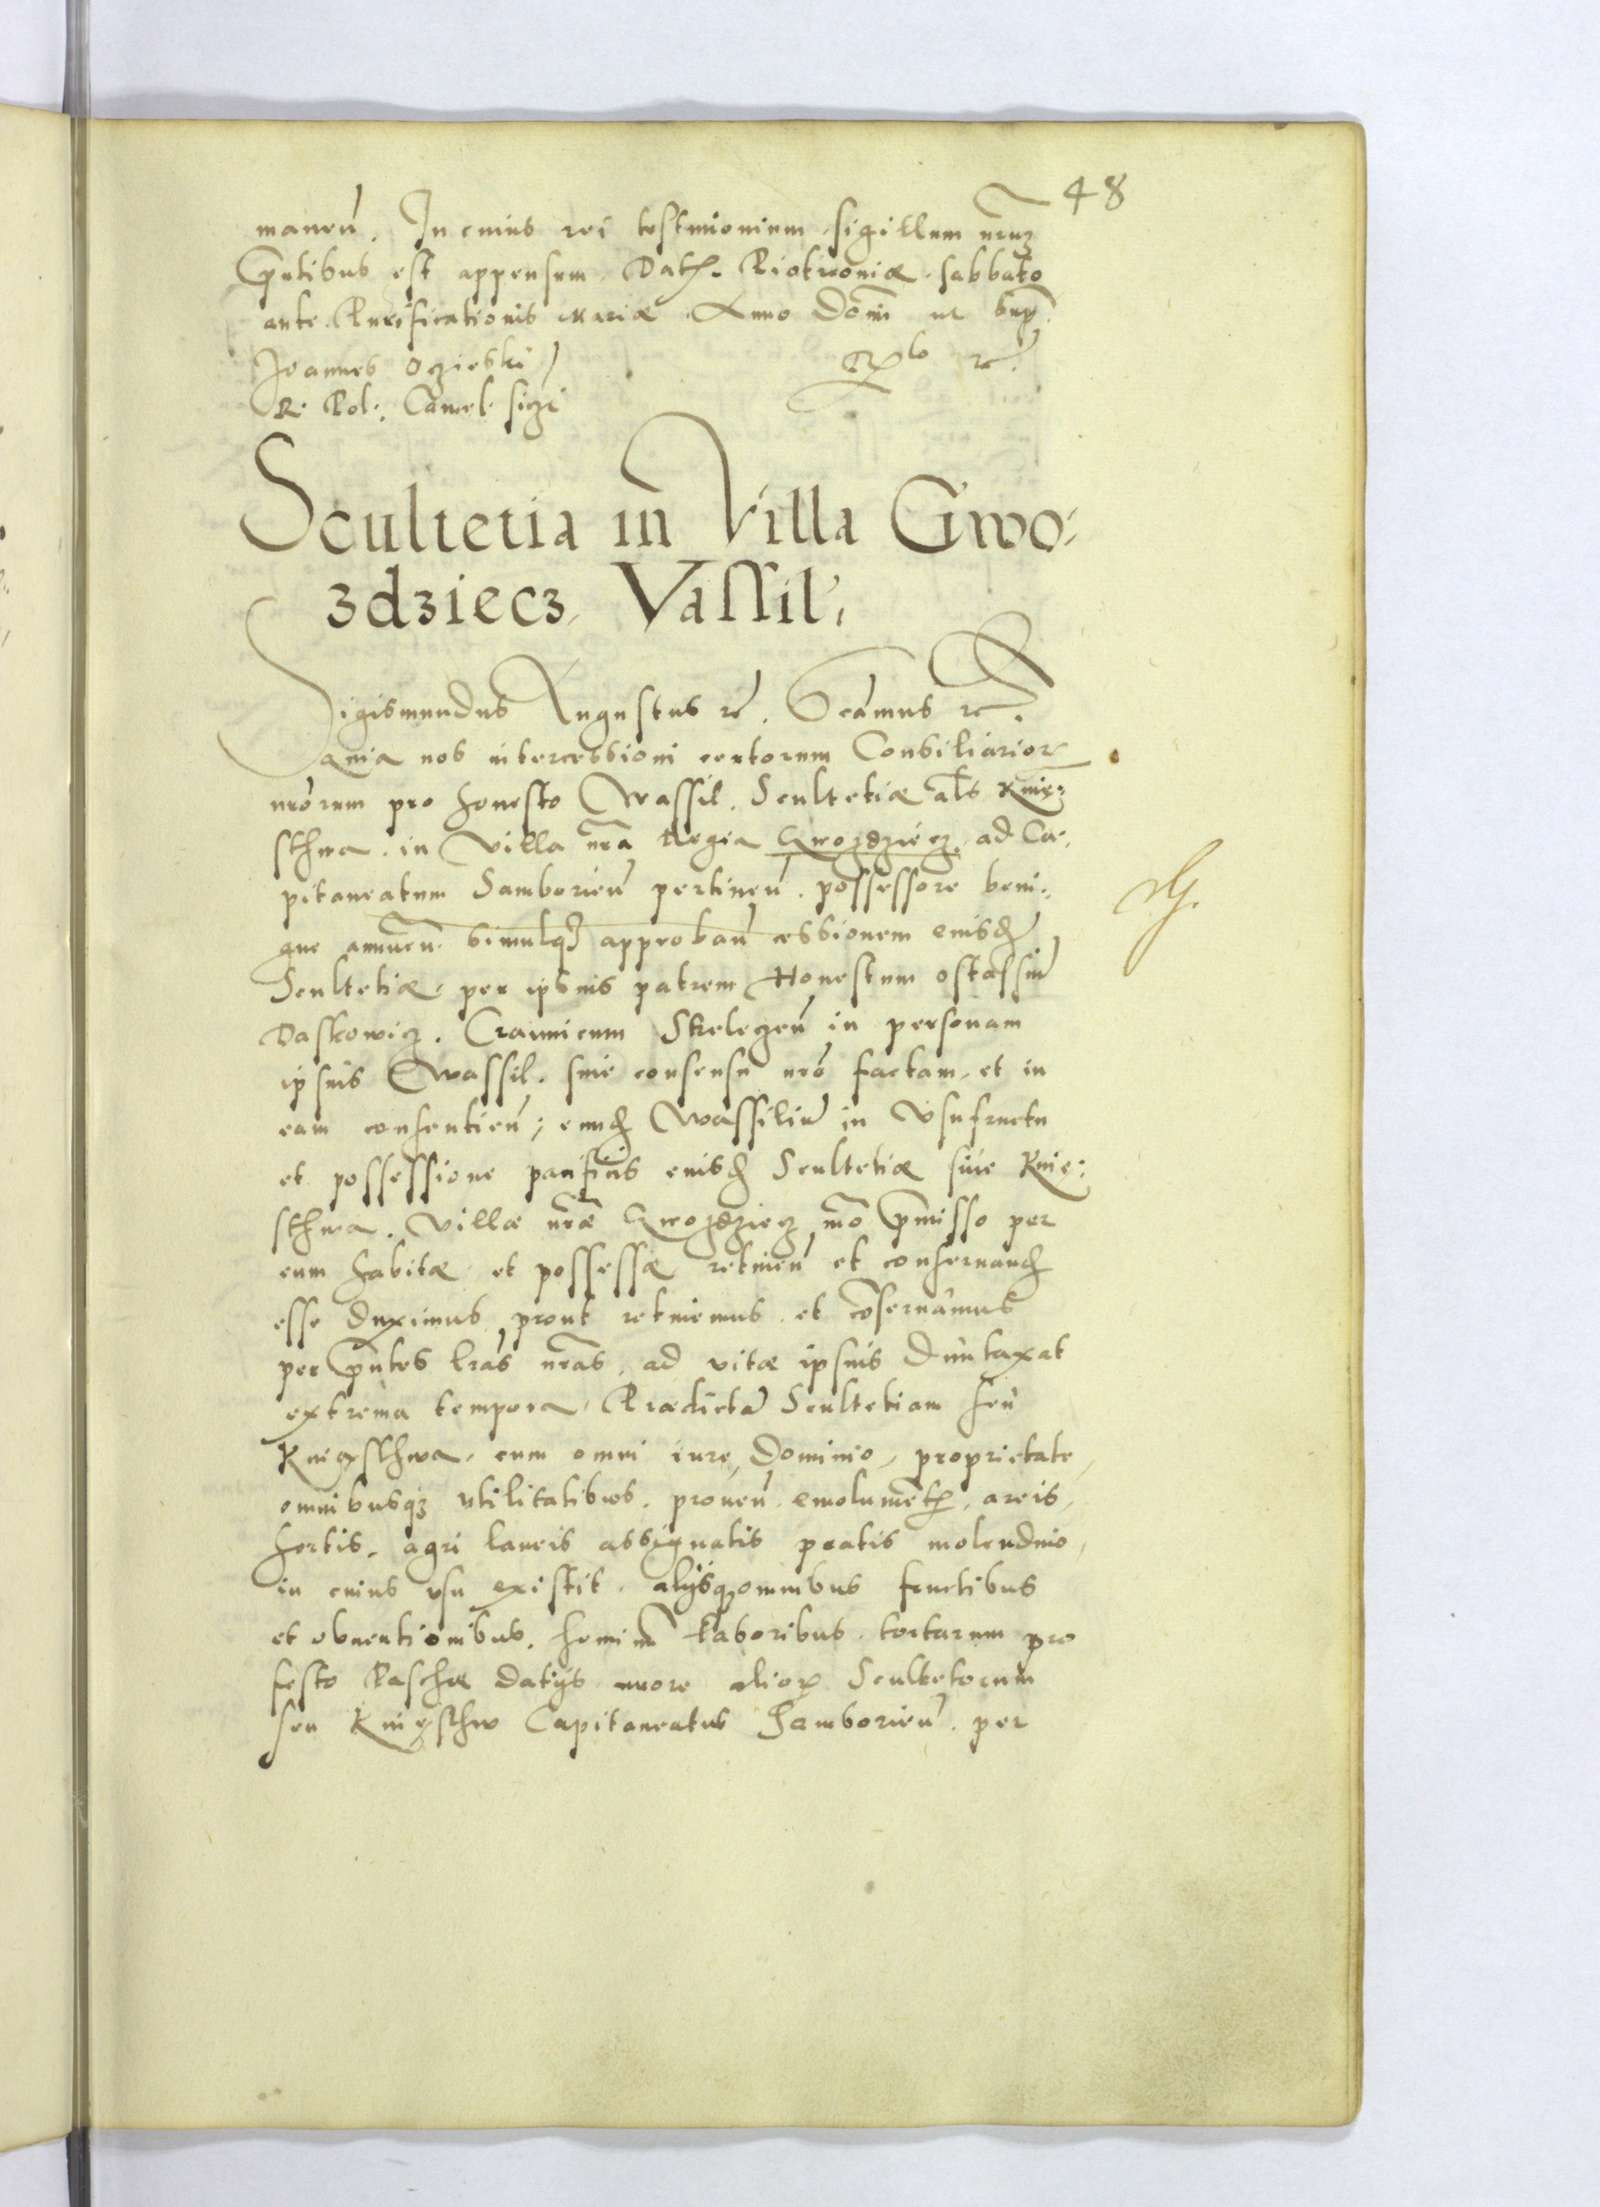 48
maneñ. In cuius rei testimonium sigillum nrũ
p̃ntibus est appensum. Datũ. Piotrcouiæ. sabbato
ante Purificationis Mariæ. Anno Domi ut sup̃.
Joannes Oczieski
R. Pol. Cancel. ss
Scultetia in Villa Gwo-
zdziecz. Vassil.
Sigismundus Augustus etc. Significamus etc.
Quia nos intercessioni certorum Consiliarior
nrorum pro honesto Wassil. Scultetiæ als Knię-
sthwa. in Villa nra Regia Gwozdziecz. ad Ca-
pitaneatum Samborieñ pertineñ. possessore beni-
gne annueñ. simulq3 approbañ cessionem eiusd
Scultetiæ. per ipsius patrem Honestum Ostassiũ
Daskowicz. Crannicum Strelczeñ in personam
ipsius Wassil. sine consensu nro factam. et in
eam consentieñ; eund Wassiliũ in Vsufructu
et possessione pacificis eiusd Scultetiæ siue Knię-
sthwa. Villæ nræ Gwozdziecz mo p̃misso per
eum habitæ et possessæ retineñ et conseruand
esse duximus prout retinemus et coseruamus
per p̃ntes lras nras. ad vitæ ipsius duntaxat
extrema tempora. Prædictã Scultetiam seu
Knięsthwa. cum omni iure, Dominio, proprietate,
omnibusq3 vtilitatibus. proueñ. emolumet. areis,
hortis. agri laneis assignatis pratis molendino,
in cuius vsu existit. alijsq3 omnibus fructibus
et obuentionibus. hominũ laboribus. tortarum pro
festo Paschæ datijs more alior Scultetorum
seu Knięsthw Capitaneatus Samborieñ. per